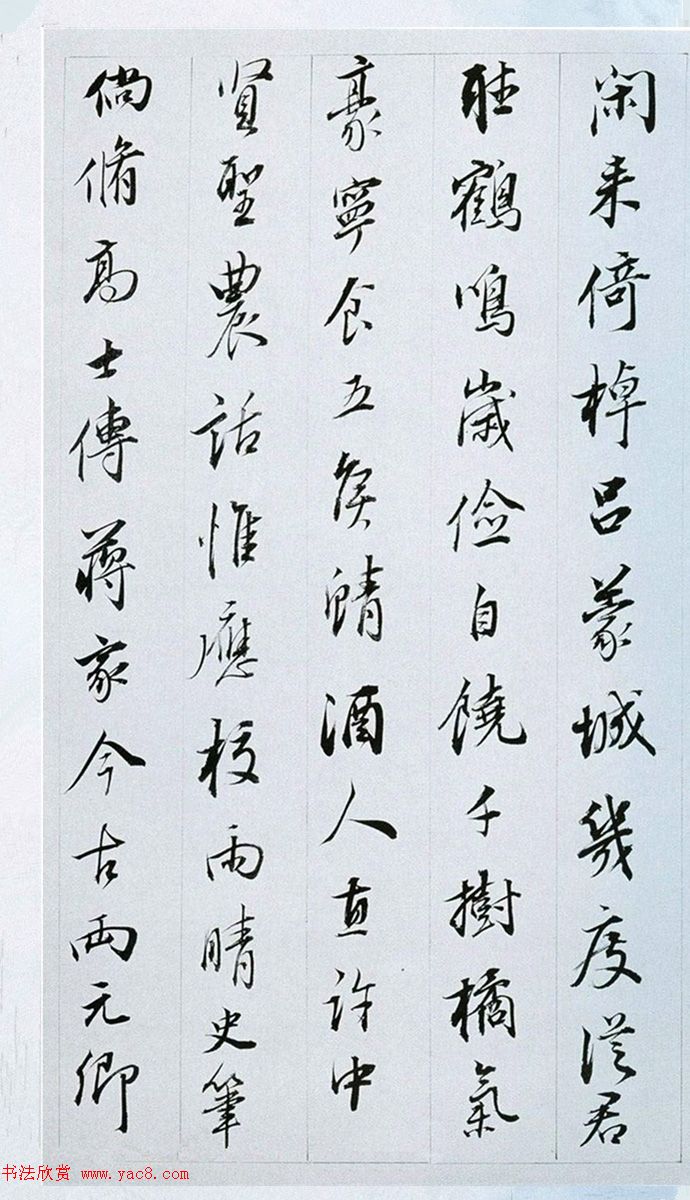 闲来倚棹吕蒙城幾度從君
聽鶴鳴歲儉自饒千樹橘氣
豪寧食五矦鯖酒人直許中
賢聖農話惟應校雨晴史筆
倘脩高士傳蔣家今古兩元卿
书法欣赏 www.yac8.com